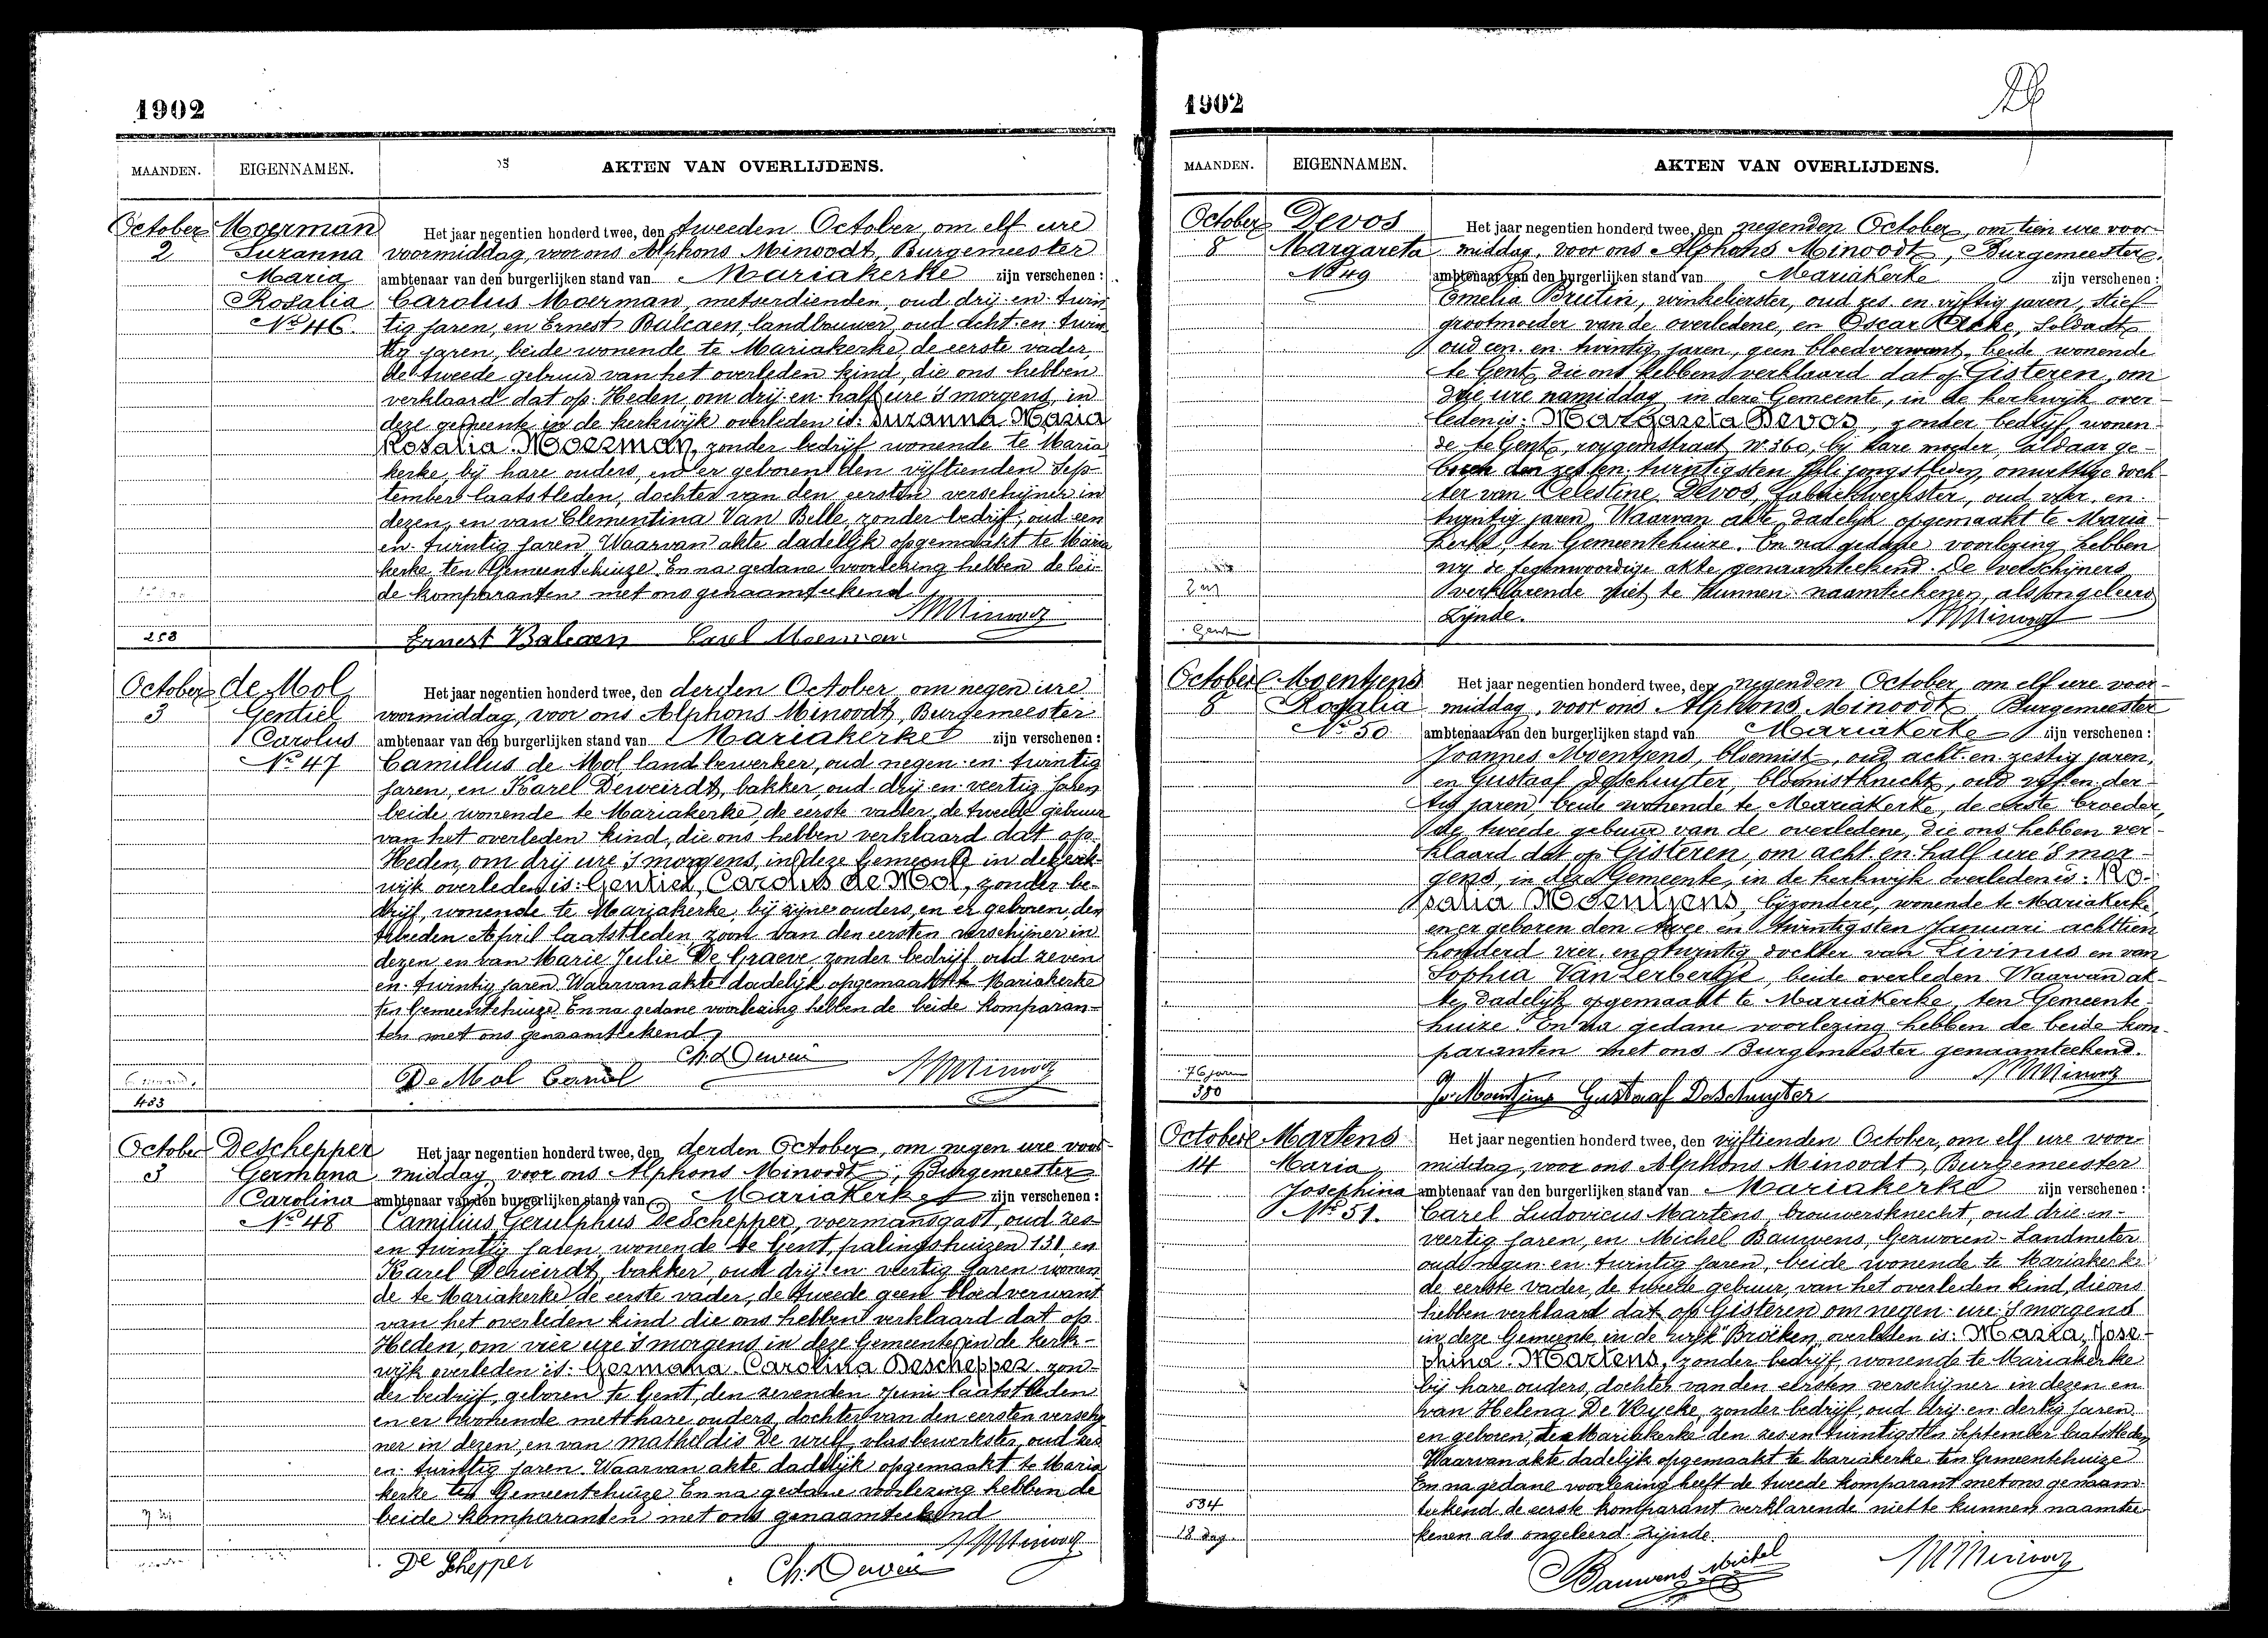 1902
MAANDEN. EIGENNAMEN. AKTEN VAN OVERLIJDENS.
October Moerman Het jaar negentien honderd twee, den tweeden October, om elf ure
2 Suzanna voormiddag, voor ons Alphons Minoodt, Burgemeester
Maria ambtenaar van den burgerlijken stand van Mariakerke zijn verschenen:
Rosalia Carolus Moerman, metserdienden, oud drij-en-twin
No 46. tig jaren, en Ernest Balcaen, landbouwer, oud acht-en-twin
tig jaren, beide wonende te Mariakerke, de eerste vader,
de tweede gebuur van het overleden kind, die ons hebben
verklaard dat op Heden, om drij en half ure 's morgens, in
deze gemeente in de kerkwijk overleden is: Suzanna Maria
Rosalia Moerman, zonder bedrijf wonende te Maria
kerke, bij hare ouders, en er geboren den vijftienden Sep
tember laatstleden, dochter van den eersten verschijner in
dezen, en van Clementina Van Belle, zonder bedrijf, oud een
en twintig jaren Waarvan akte dadelijk opgemaakt te Maria
kerke ten Gemeentehuize. En na gedane voorlezing hebben de bei
de komparanten met ons genaamteekend
258 Ernest Balcaen Carel Moerman
October de Mol Het jaar negentien honderd twee, den derden October, om negen ure
3 Gentiel voormiddag, voor ons Alphons Minoodt, Burgemeester
Carolus ambtenaar van den burgerlijken stand van Mariakerke zijn verschenen:
No 47 Camillus de Mol, landbewerker, oud negen-en-twintig
jaren, en Karel Deweirdt, bakker, oud drij-en-veertig jaren
beide wonende te Mariakerke, de eerste vader, de tweede gebuur
van het overleden kind, die ons hebben verklaard dat op
Heden, om drij ure 's morgens, in deze Gemeente in de kerk-
wijk overleden is: Gentiel, Carolus de Mol, zonder be-
drijf, wonende te Mariakerke, bij zijne ouders, en er geboren den
tweeden April laatstleden, zoon van den eersten verschijner in
dezen, en van Marie Julie De Graeve, zonder bedrijf, oud zeven
en twintig jaren Waarvan akte dadelijk opgemaakt te Mariakerke
ten Gemeentehuize. En na gedane voorlezing hebben de beide komparan-
ten met ons genaamteekend
De Mol Carel
483
October Deschepper Het jaar negentien honderd twee, den derden October, om negen ure voor-
3 Germana middag voor ons Alphons Minoodt, Burgemeester
Carolina ambtenaar van den burgerlijken stand van Mariakerke zijn verschenen:
No 48 Camilius Gerulphus Deschepper, voermansgast, oud zes
en twintig jaren, wonende te Gent, palingshuizen 131, en
Karel Deweirdt, bakker, oud drij en veertig jaren wonen
de te Mariakerke de eerste vader, de tweede geen bloedverwant
van het overleden kind die ons hebben verklaard dat op
Heden, om vier ure 's morgens in deze Gemeente in de kerk-
wijk overleden is: Germana Carolina Deschepper zon-
der bedrijf, geboren te Gent, den zevenden Juni laatstleden
en er wonende met hare ouders, dochter van den eersten verschij
ner in dezen, en van Mathildis De wulf, vlasbewerkster, oud zes
en twintig jaren. Waarvan akte dadelijk opgemaakt te Maria
kerke ten Gemeentehuize En na gedane voorlezing hebben de
beide komparanten met ons genaamteekend
De Schepper
1902
MAANDEN. EIGENNAMEN. AKTEN VAN OVERLIJDENS.
October Devos Het jaar negentien honderd twee, den negenden October, om tien ure voor-
8 Margareta middag, voor ons Alphons Minoodt, Burgemeester
No 49 ambtenaar van den burgerlijken stand van Mariakerke zijn verschenen:
Emelia Brutin, winkelierster, oud zes en vijftig jaren, stief
grootmoeder van de overledene, en Oscar soldaat
oud een en twintig jaren, geen bloedverwant, beide wonende
te Gent, die ons hebben verklaard dat op Gisteren, om
drie ure namiddag in deze Gemeente, in de kerkwijk over-
leden is: Margareta Devos, zonder bedrijf, wonen-
de te Gent, rooygemstraat No 360, bij hare moeder, aldaar ge-
boren den zes en twintigsten Juli jongstleden, onwettige doch-
ter van Celestine Devos, fabriekwerkster, oud vier en
twintig jaren, Waarvan akte dadelijk opgemaakt te Maria-
kerke, ten Gemeentehuize. En na gedane voorlezing hebben
wij de tegenwoordige akte genaamteekend. De verschijners
verklarende niet te kunnen naamteekenen, als ongeleerd
Gent zijnde.
October Moentjens Het jaar negentien honderd twee, den negenden October, om elf ure voor-
8 Rosalia middag, voor ons Alphons Minoodt Burgemeester
No 50. ambtenaar van den burgerlijken stand van Mariakerke zijn verschenen:
Joannes Moentjens, bloemist, oud acht en zestig jaren,
en Gustaaf Deschuyter, bloemistknecht, oud vijf en der-
tig jaren, beide wonende te Mariakerke, de eerste broeder,
de tweede gebuur van de overledene, die ons hebben ver-
klaard dat op Gisteren, om acht en half ure 's mor-
gens, in deze Gemeente, in de kerkwijk overleden is: Ro-
salia Moentjens, bijzondere, wonende te Mariakerke,
en er geboren den twee en twintigsten Januari achttien
honderd vier en twintig dochter van Livinus en van
Sophia Van Zerberkst, beide overleden. Waarvan ak-
te, dadelijk opgemaakt te Mariakerke, ten Gemeente-
huize. En na gedane voorlezing hebben de beide kom-
paranten met ons Burgemeester genaamteekend.
76 jaren
380 Jo. Moentjens Gustaaf DeSchuyter
October Martens Het jaar negentien honderd twee, den vijftienden October, om elf ure voor-
14 Maria middag, voor ons Alphons Minoodt, Burgemeester
Josephina ambtenaar van den burgerlijken stand van Mariakerke zijn verschenen:
No 51. Carel Ludovicus Martens, brouwersknecht, oud drie-en-
veertig jaren, en Michel Bauwens, Gezworen-Landmeter
oud negen-en-twintig jaren, beide wonende te Mariakerke
de eerste vader, de tweede gebuur, van het overleden kind, die ons
hebben verklaard dat op Gisteren om negen ure 's morgens
in deze Gemeente in de wijk Broeken overleden is: Maria, Jose-
phina Martens, zonder bedrijf, wonende te Mariakerke
bij hare ouders, dochter van den eersten verschijner in dezen en
van Helena De Wycke, zonder bedrijf, oud drij-en-dertig jaren
en geboren te Mariakerke den zes en twintigsten September laatstleden
Waarvan akte dadelijk opgemaakt te Mariakerke ten Gemeentehuize
En na gedane voorlezing heeft de tweede komparant met ons genaam-
534 teekend de eerste komparant verklarende niet te kunnen naamtee-
18 dag. kenen als ongeleerd zijnde.
Bauwens Michel